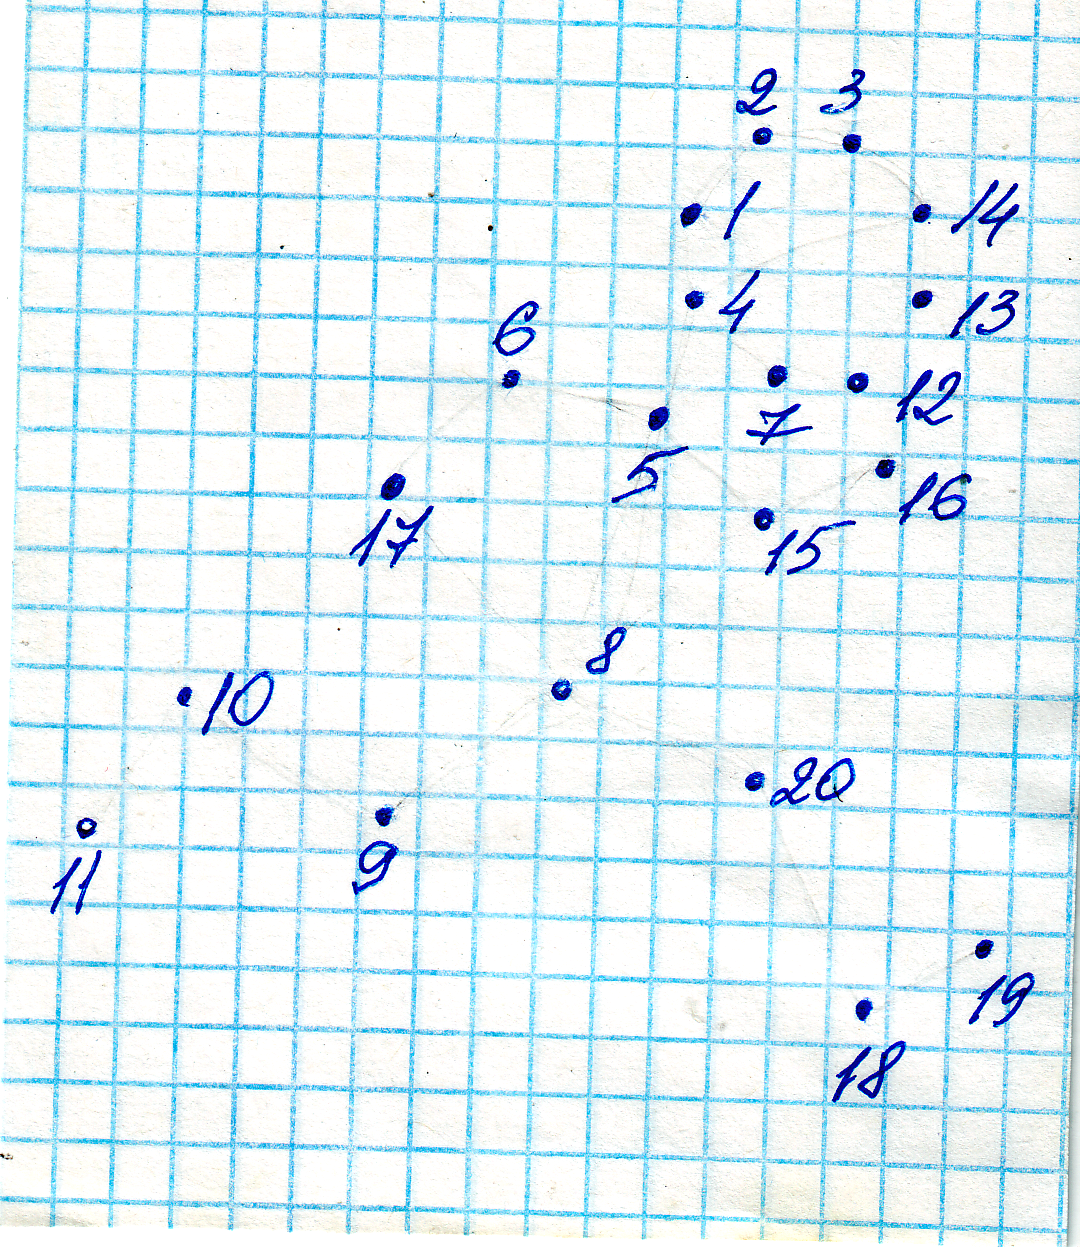 2 3
1 14
4 13
6
7 12
5 16
17 15
8
10
20
9
11
19
18